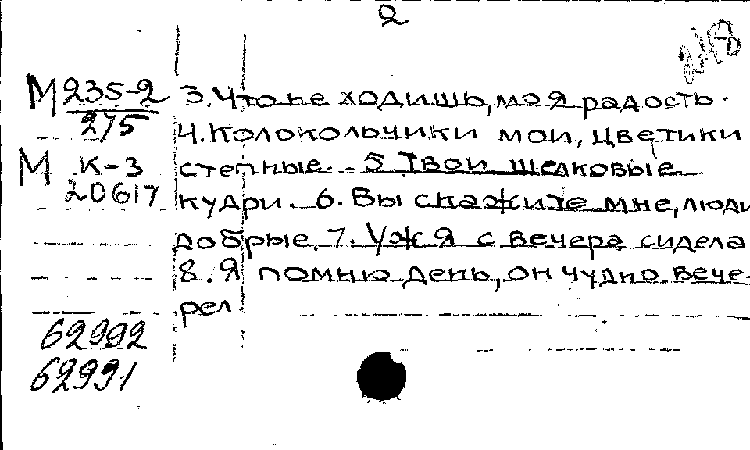 2
218
М 235-2
275
М К-3
20617
3. Что не ходишь, моя радость.
4. Колокольчики мои, цветики
степные. 5. Твои шелковые
кудри. 6. Вы скажите мне, люди
добрые. 7. Уж я с вечера сидела
8. Я помню день, он чудно вече-
рел
62992
62991